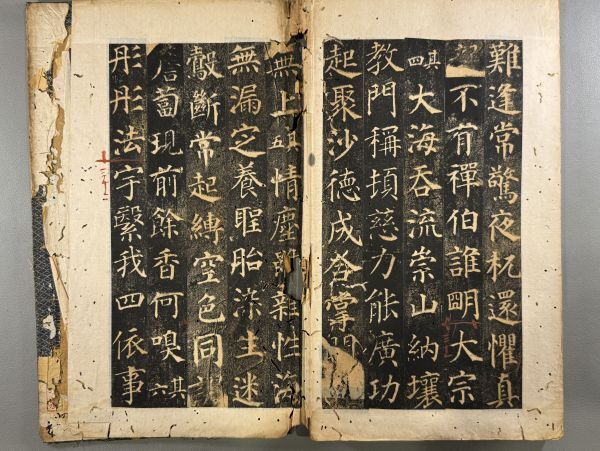 難逢常驚夜枕還懼真
不有禪伯誰明大宗
其四大海吞流崇山納壤
教門稱頓慈力能廣功
起聚沙德成合掌開
無上其五情塵雖雜性海
無漏定養聖胎染生迷
鷇斷常起縛空色同
蔔現前餘香何嗅其六
彤彤法宇繄我四依事